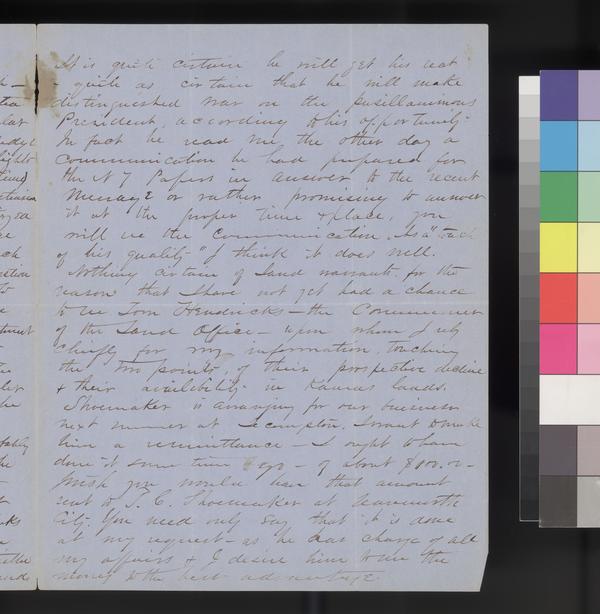 It is quite certain he will get his seat
& quite as certain that he will make
distinguished war on the pusillanimous
President, according to his opportunity.
In fact he read me the other day a
communication he had prepared for
the N Y Papers in answer to the recent
Message or rather promising to answer
it at the proper time & place, you
will see the communication. As a "taste
of his quality" I think it does well.
Nothing certain of Land warrants, for the
reason that I have not yet had a chance
to see Tom Hendricks — the Commissioner
of the Land Office — upon whom I rely
chiefly for my information, touching
the two points, of their prospective decline
& their availability in Kansas lands.
Shoemaker is arranging for our business
next summer at Lecompton. I want to make
him a remittance — I ought to have
done it some time ago — of about $100.00
I wish you would have that amount
sent to T. C. Shoemaker at Leavenworth
City. You need only say that it is done
at my request — as he has charge of all
my affairs & I desire him to use the
money to the best advantage.